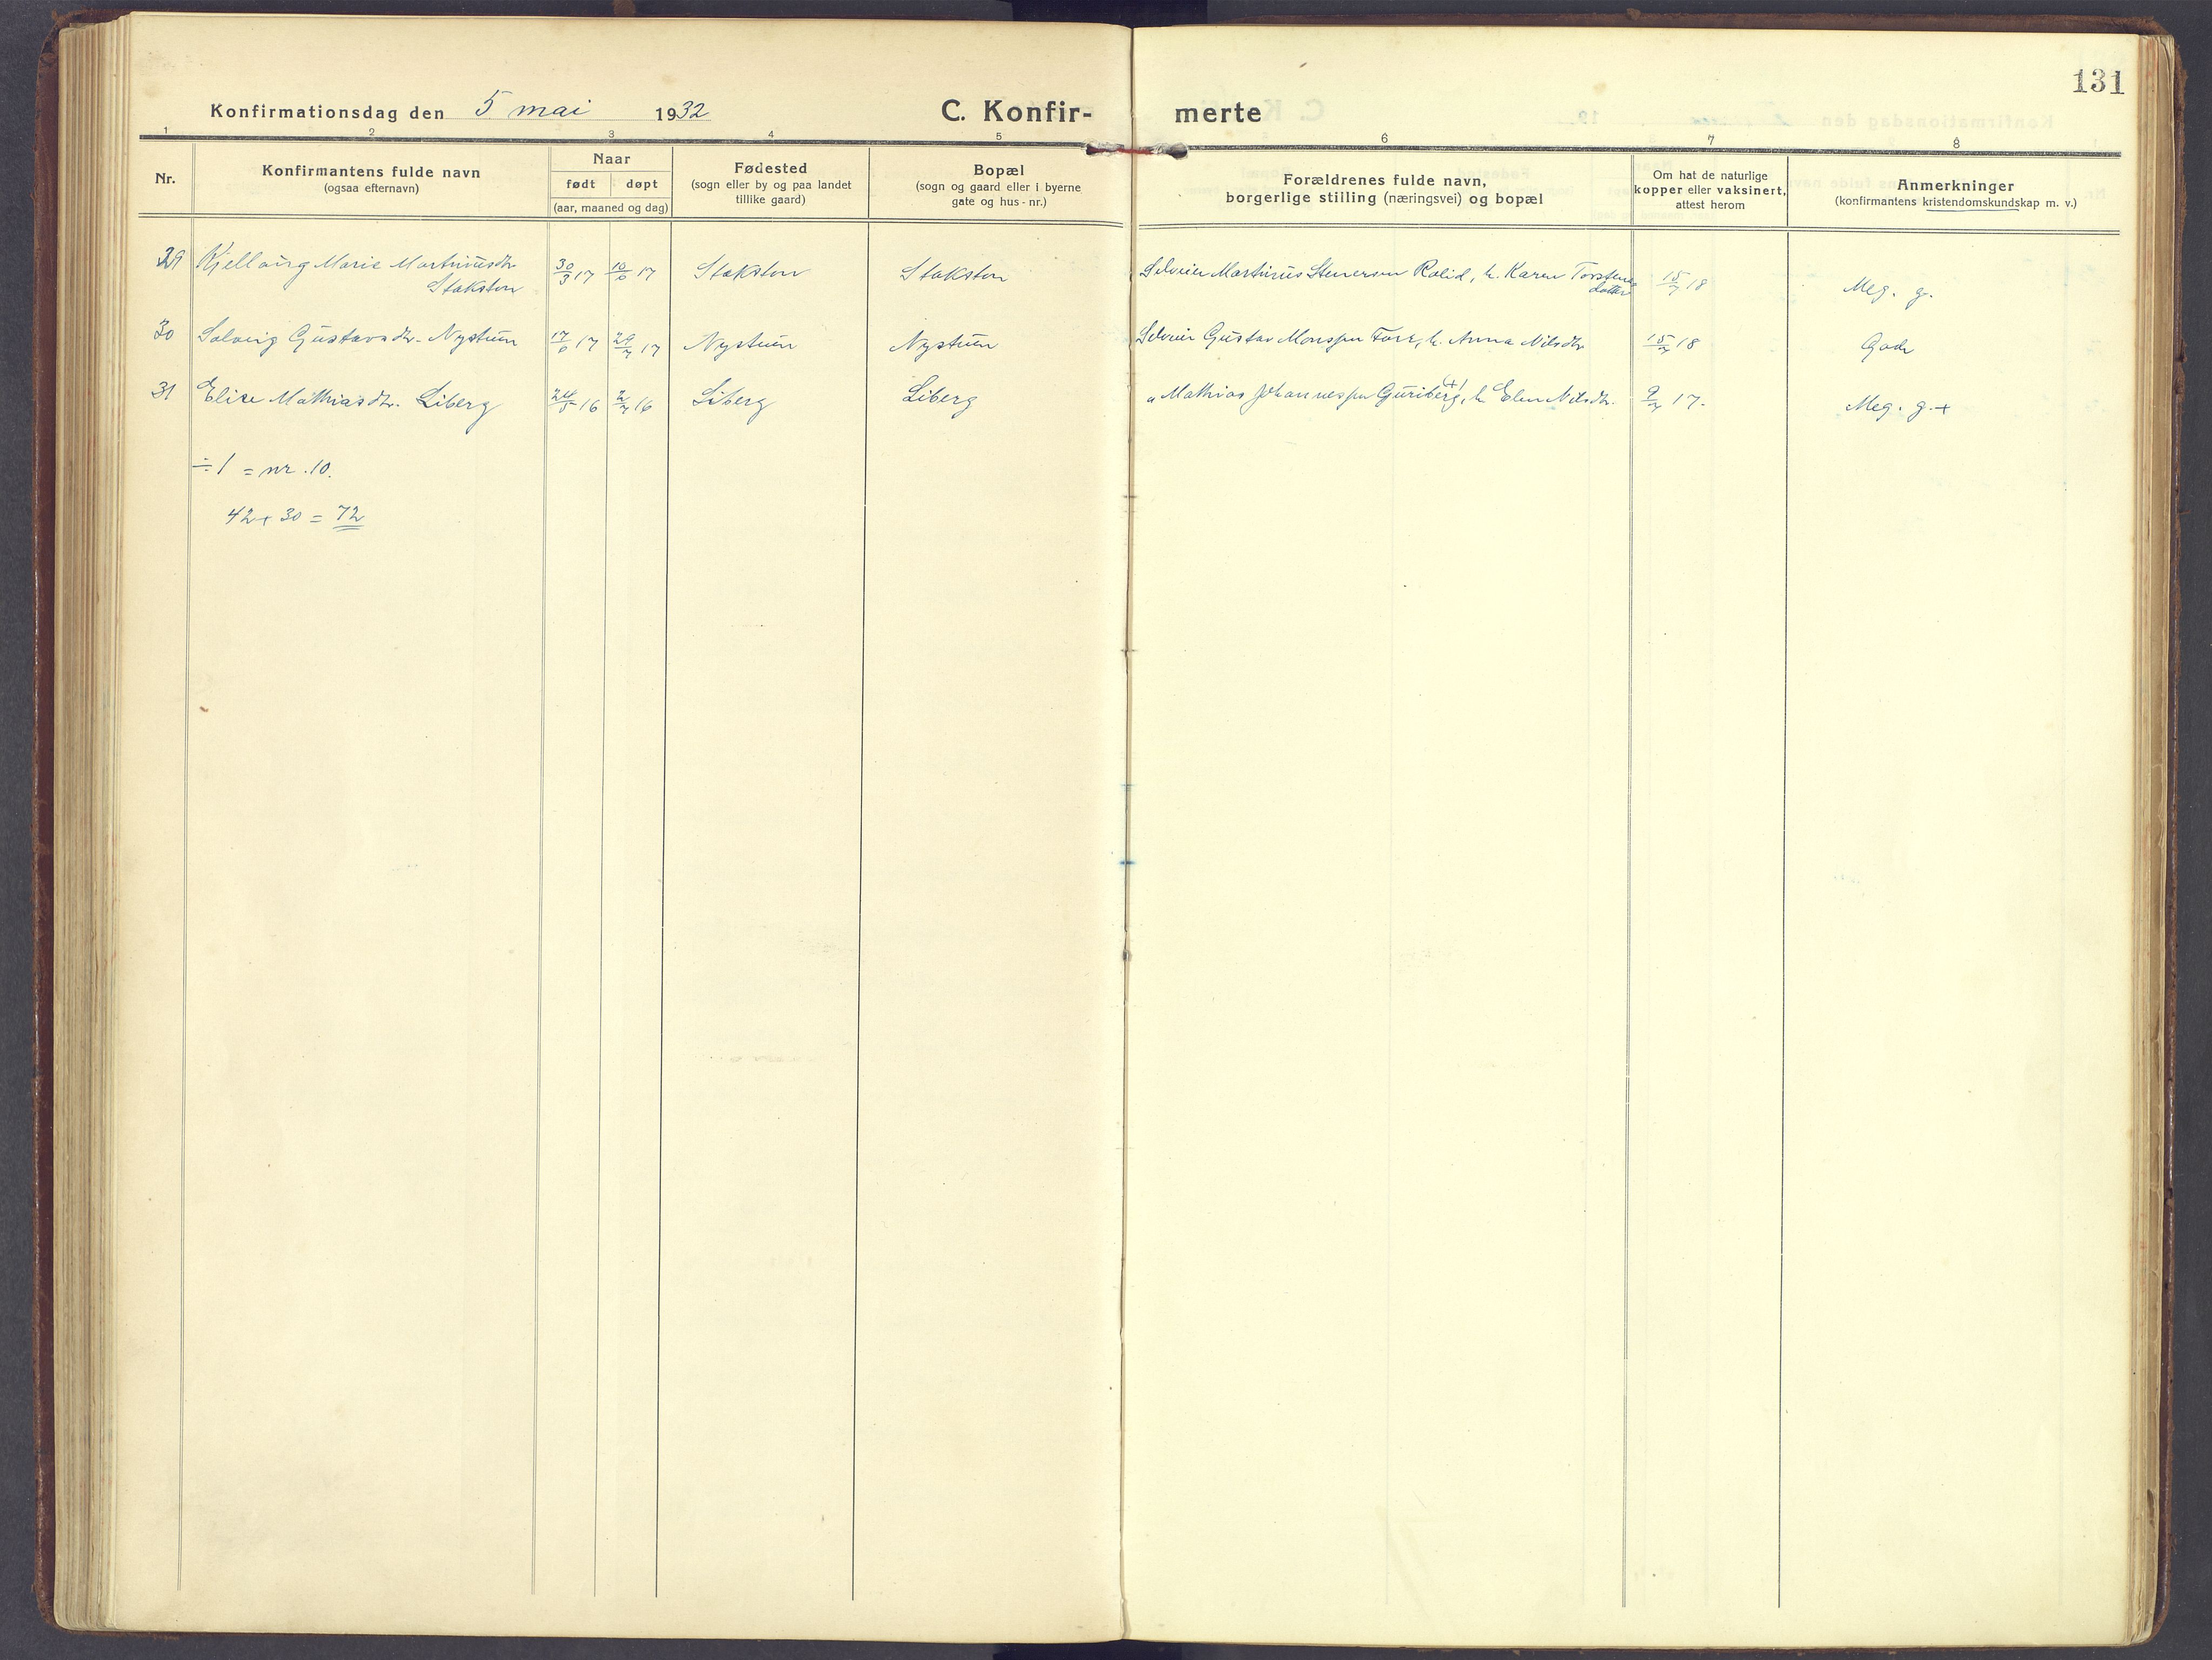 131
Konfirmationsdag den 5 mai 1932
C. Konfir- merte
1 2 3 4 5 6 7 8
Nr.
Konfirmantens fulde navn
(ogsaa efternavn)
Naar
født døpt
(aar, maaned og dag)
Fødested
(sogn eller by og paa landet
tillike gaard)
Bopæl
(sogn og gaard eller i byerne
gate og hus - nr.)
Forældrenes fulde navn,
borgerlige stilling (næringsvei) og bopæl
Om hat de naturlige
kopper eller vaksinert,
attest herom
Anmerkninger
(konfirmantens kristendomskundskap m. v.)
29 Kjellaug Marie Martinusdtr 30/3 17 10/6 17 Stakston Stakston Selveier Martinus Stenersen Rolid, h. Karen Torstens 15/7 18 Meg. g.
Stakston
datter
30 Solveig Gustavsdtr. Nystuen 17/6 17 29/7 17 Nystuen Nystuen Selveier Gustav Monssen Fore, h. Anna Nilsdtr 15/7 18 Godt
31 Elise Mathiasdtr. Liberg 24/5 16 2/7 16 Liberg Liberg " Mathias Johannessen Guriberg, h. Elen Nilsdtr. 9/7 17. Meg. g. +
÷ 1 = nr. 10.
42 + 30 = 72